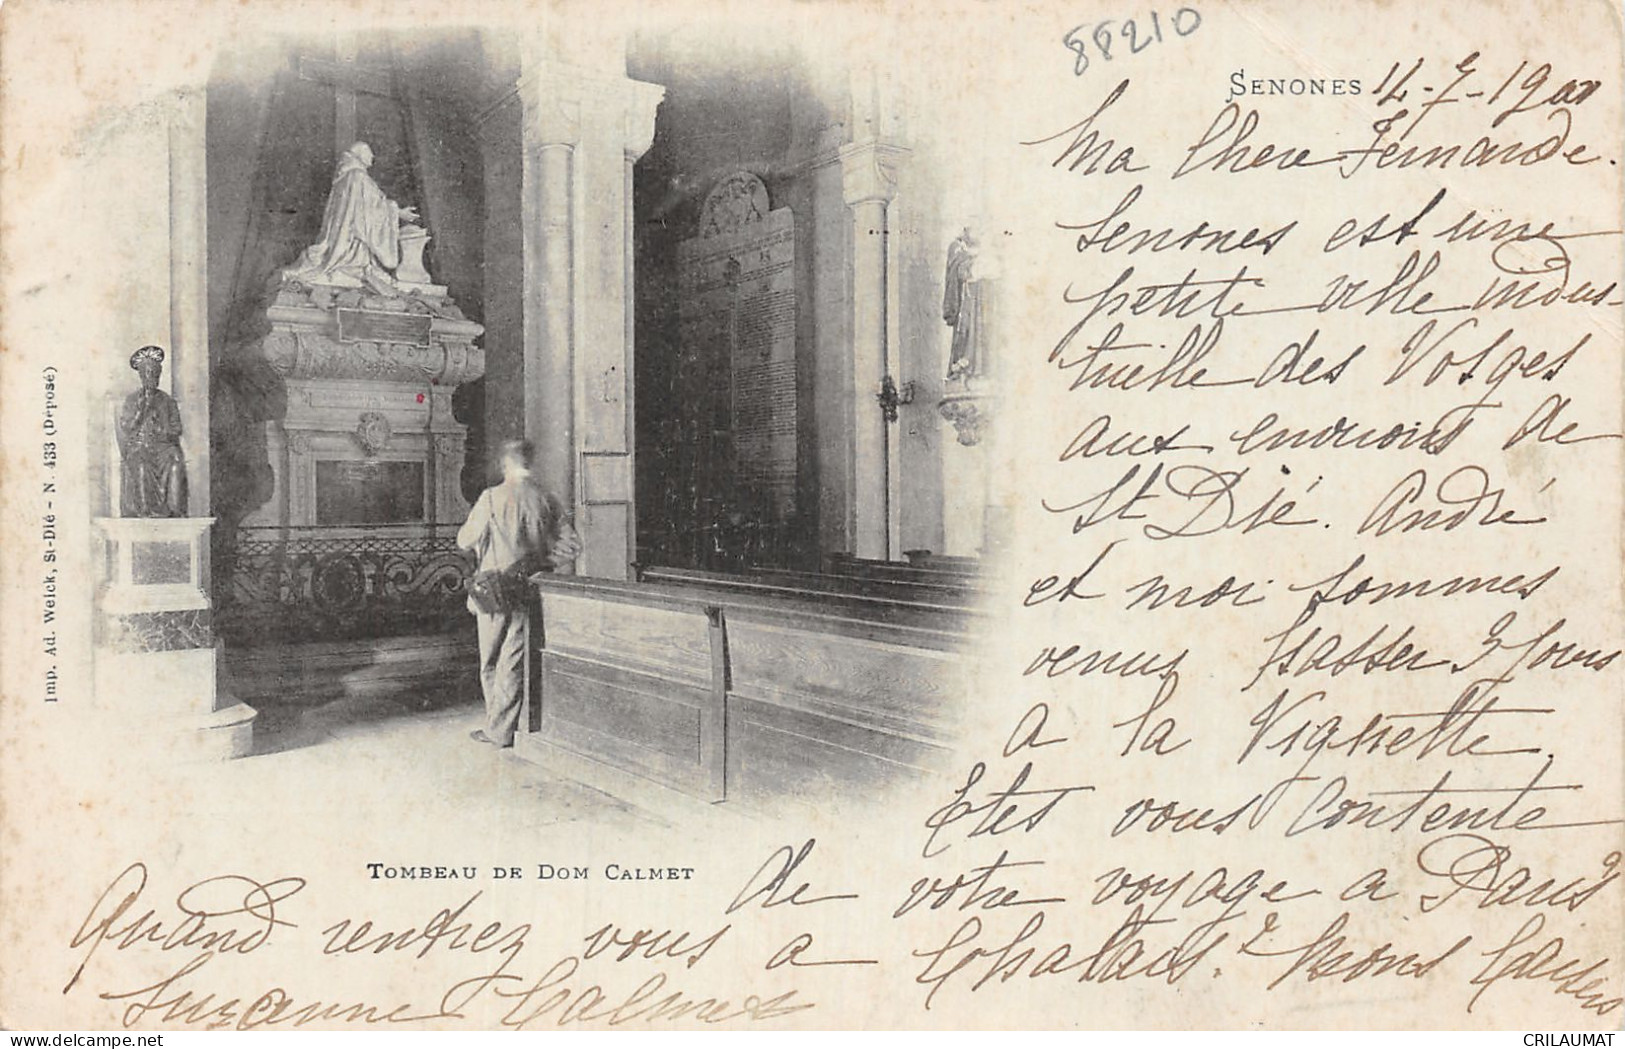 88210
SENONES 14-7-1900
Ma Chere Fernande.
Senones est une
petite ville indus-
trielle des Vosges
aux environs de
St Dié. André
et moi sommes
venus passer 3 jours
a la Vignette.
Etes vous contente
de votre voyage a Paris?
Quand rentrez vous a Chalais? Bons baisers
Suzanne Calmes
TOMBEAU DE DOM CALMET
Imp. Ad. Weick, St-Dié - N. 433 (Déposé)
delcampe.net
CRILAUMAT